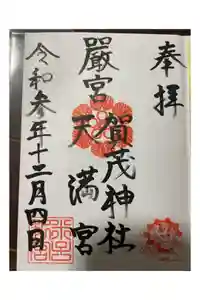 奉拝
賀茂神社
嚴宮
天満宮
令和参年十二月四日